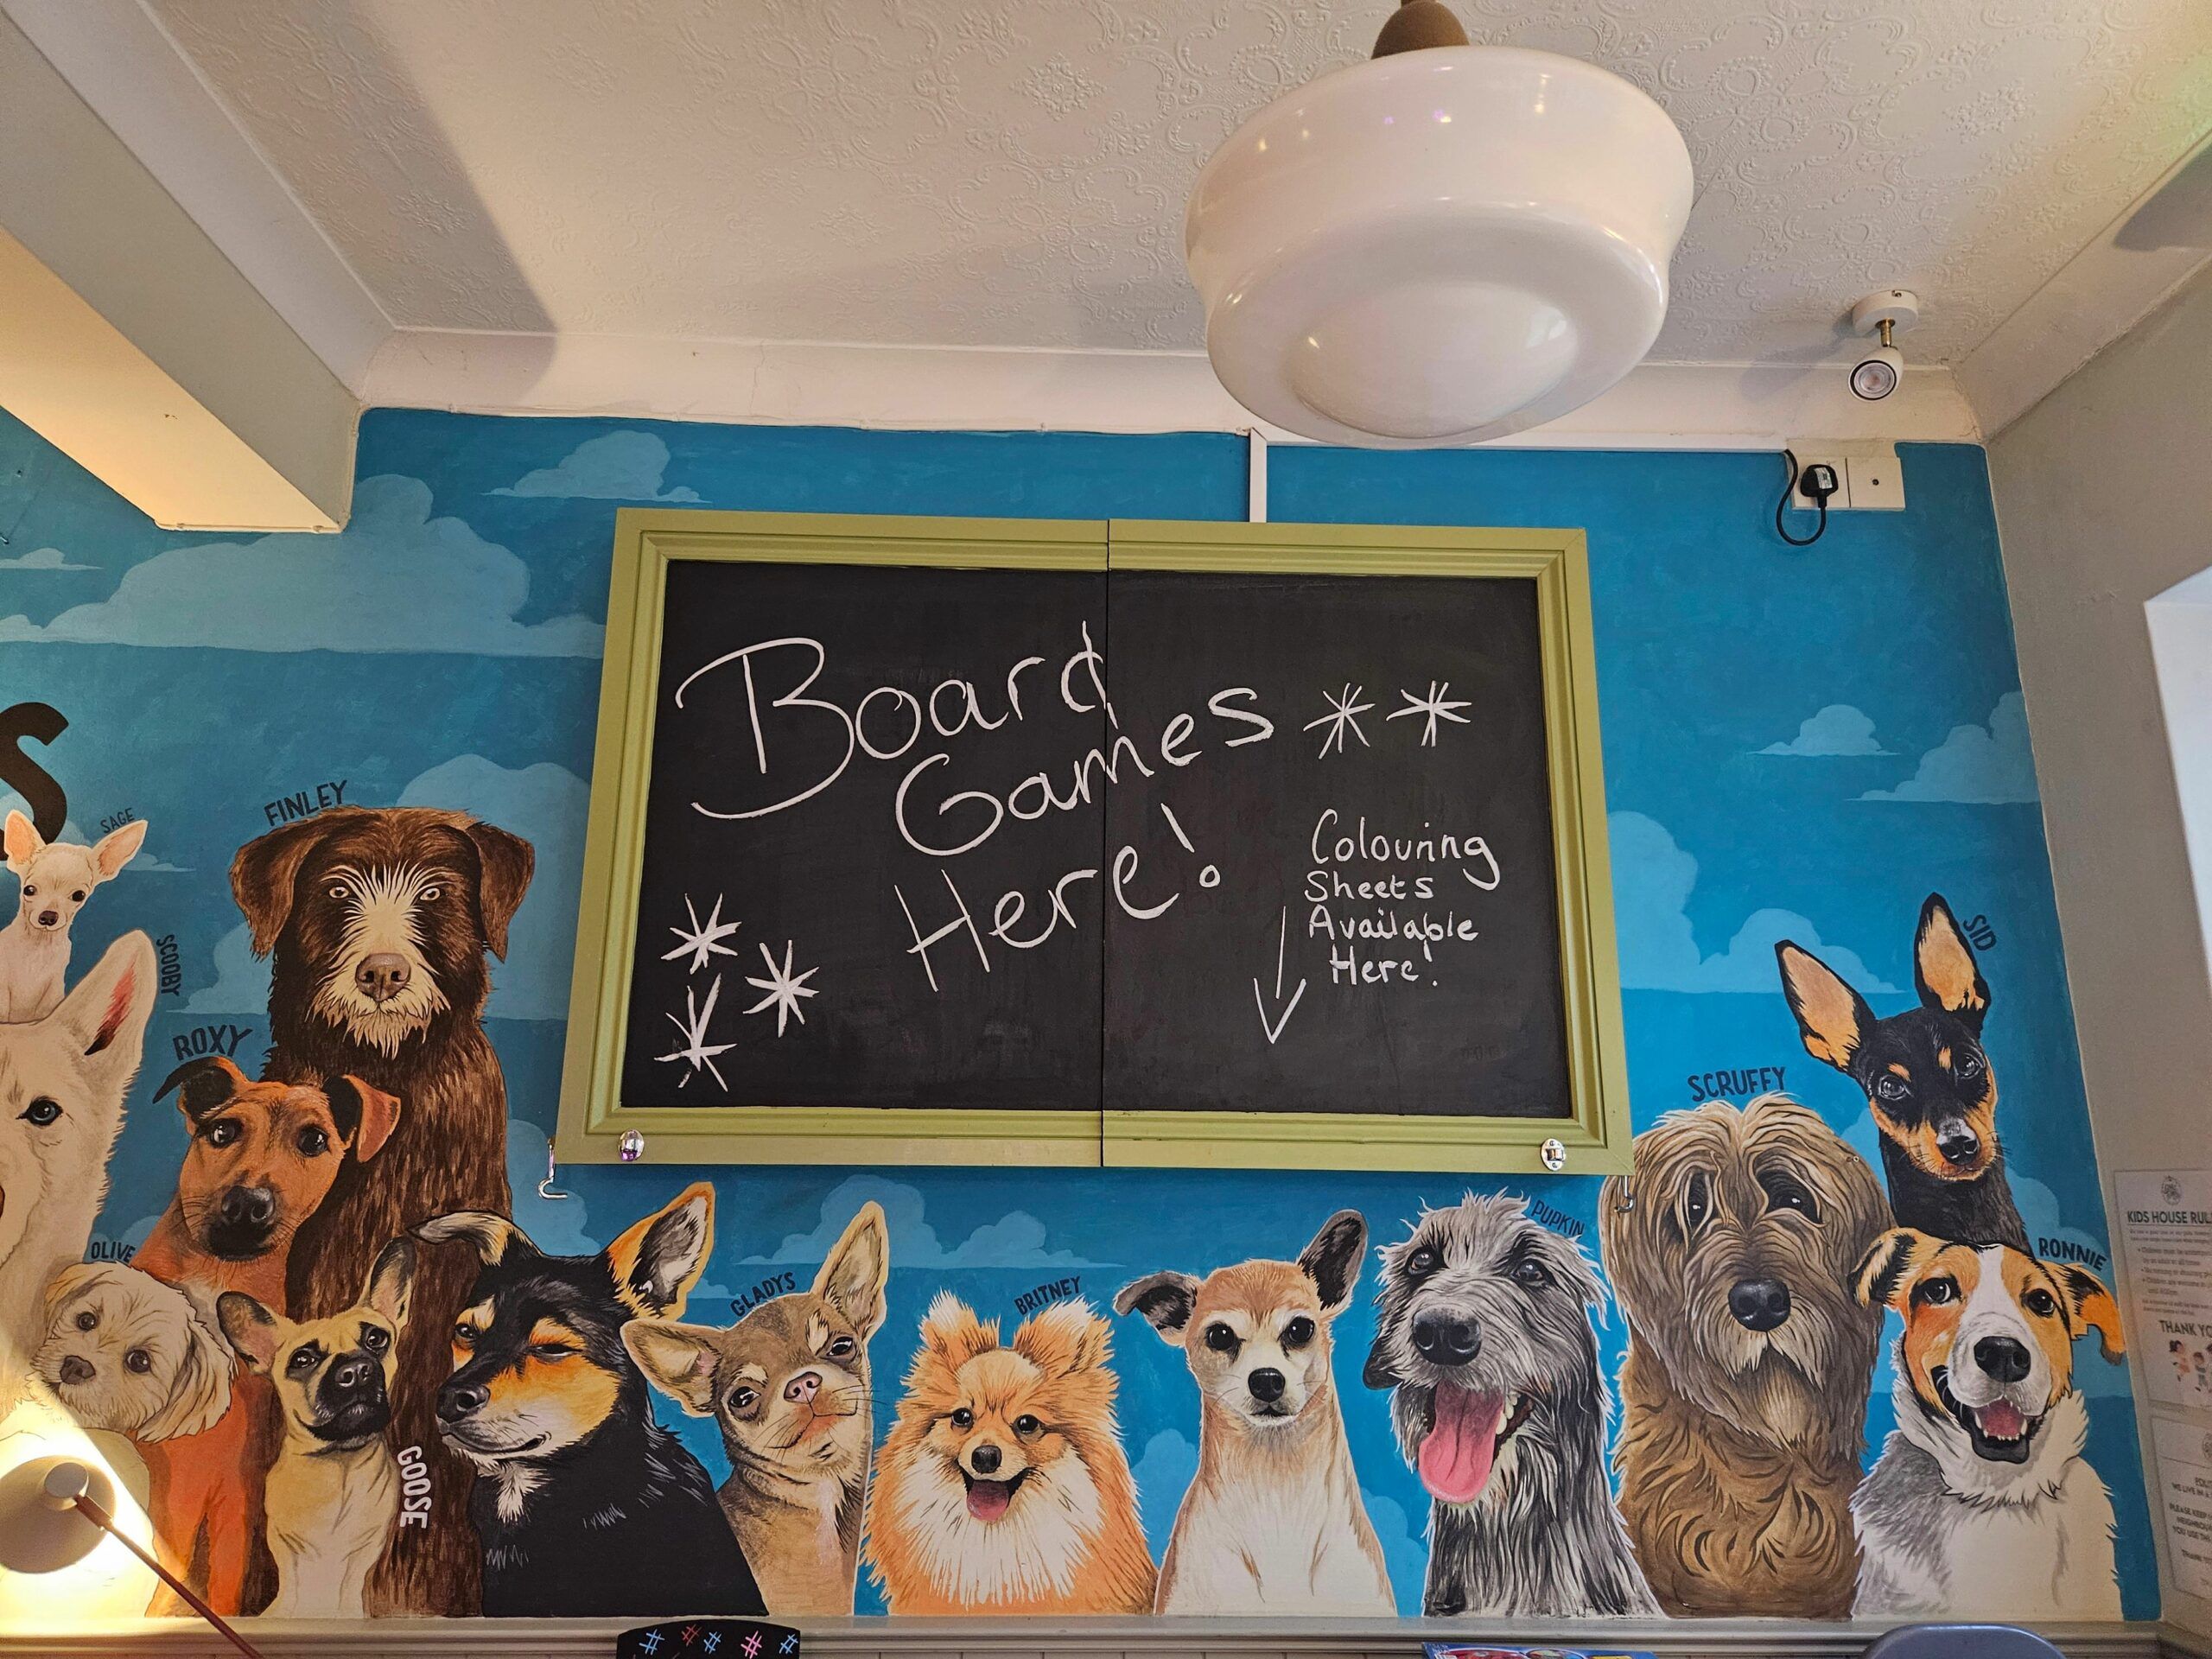 Board
Games
Here!
Colouring
Sheets
Available
Here!
S
SAGE
FINLEY
SCOOBY
ROXY
OLIVE
GOOSE
GLADYS
BRITNEY
PUPKIN
SCRUFFY
SID
RONNIE
# # # # #
KIDS HOUSE RUL
THANK YO
WE LIVE IN A
PLEASE KEEP